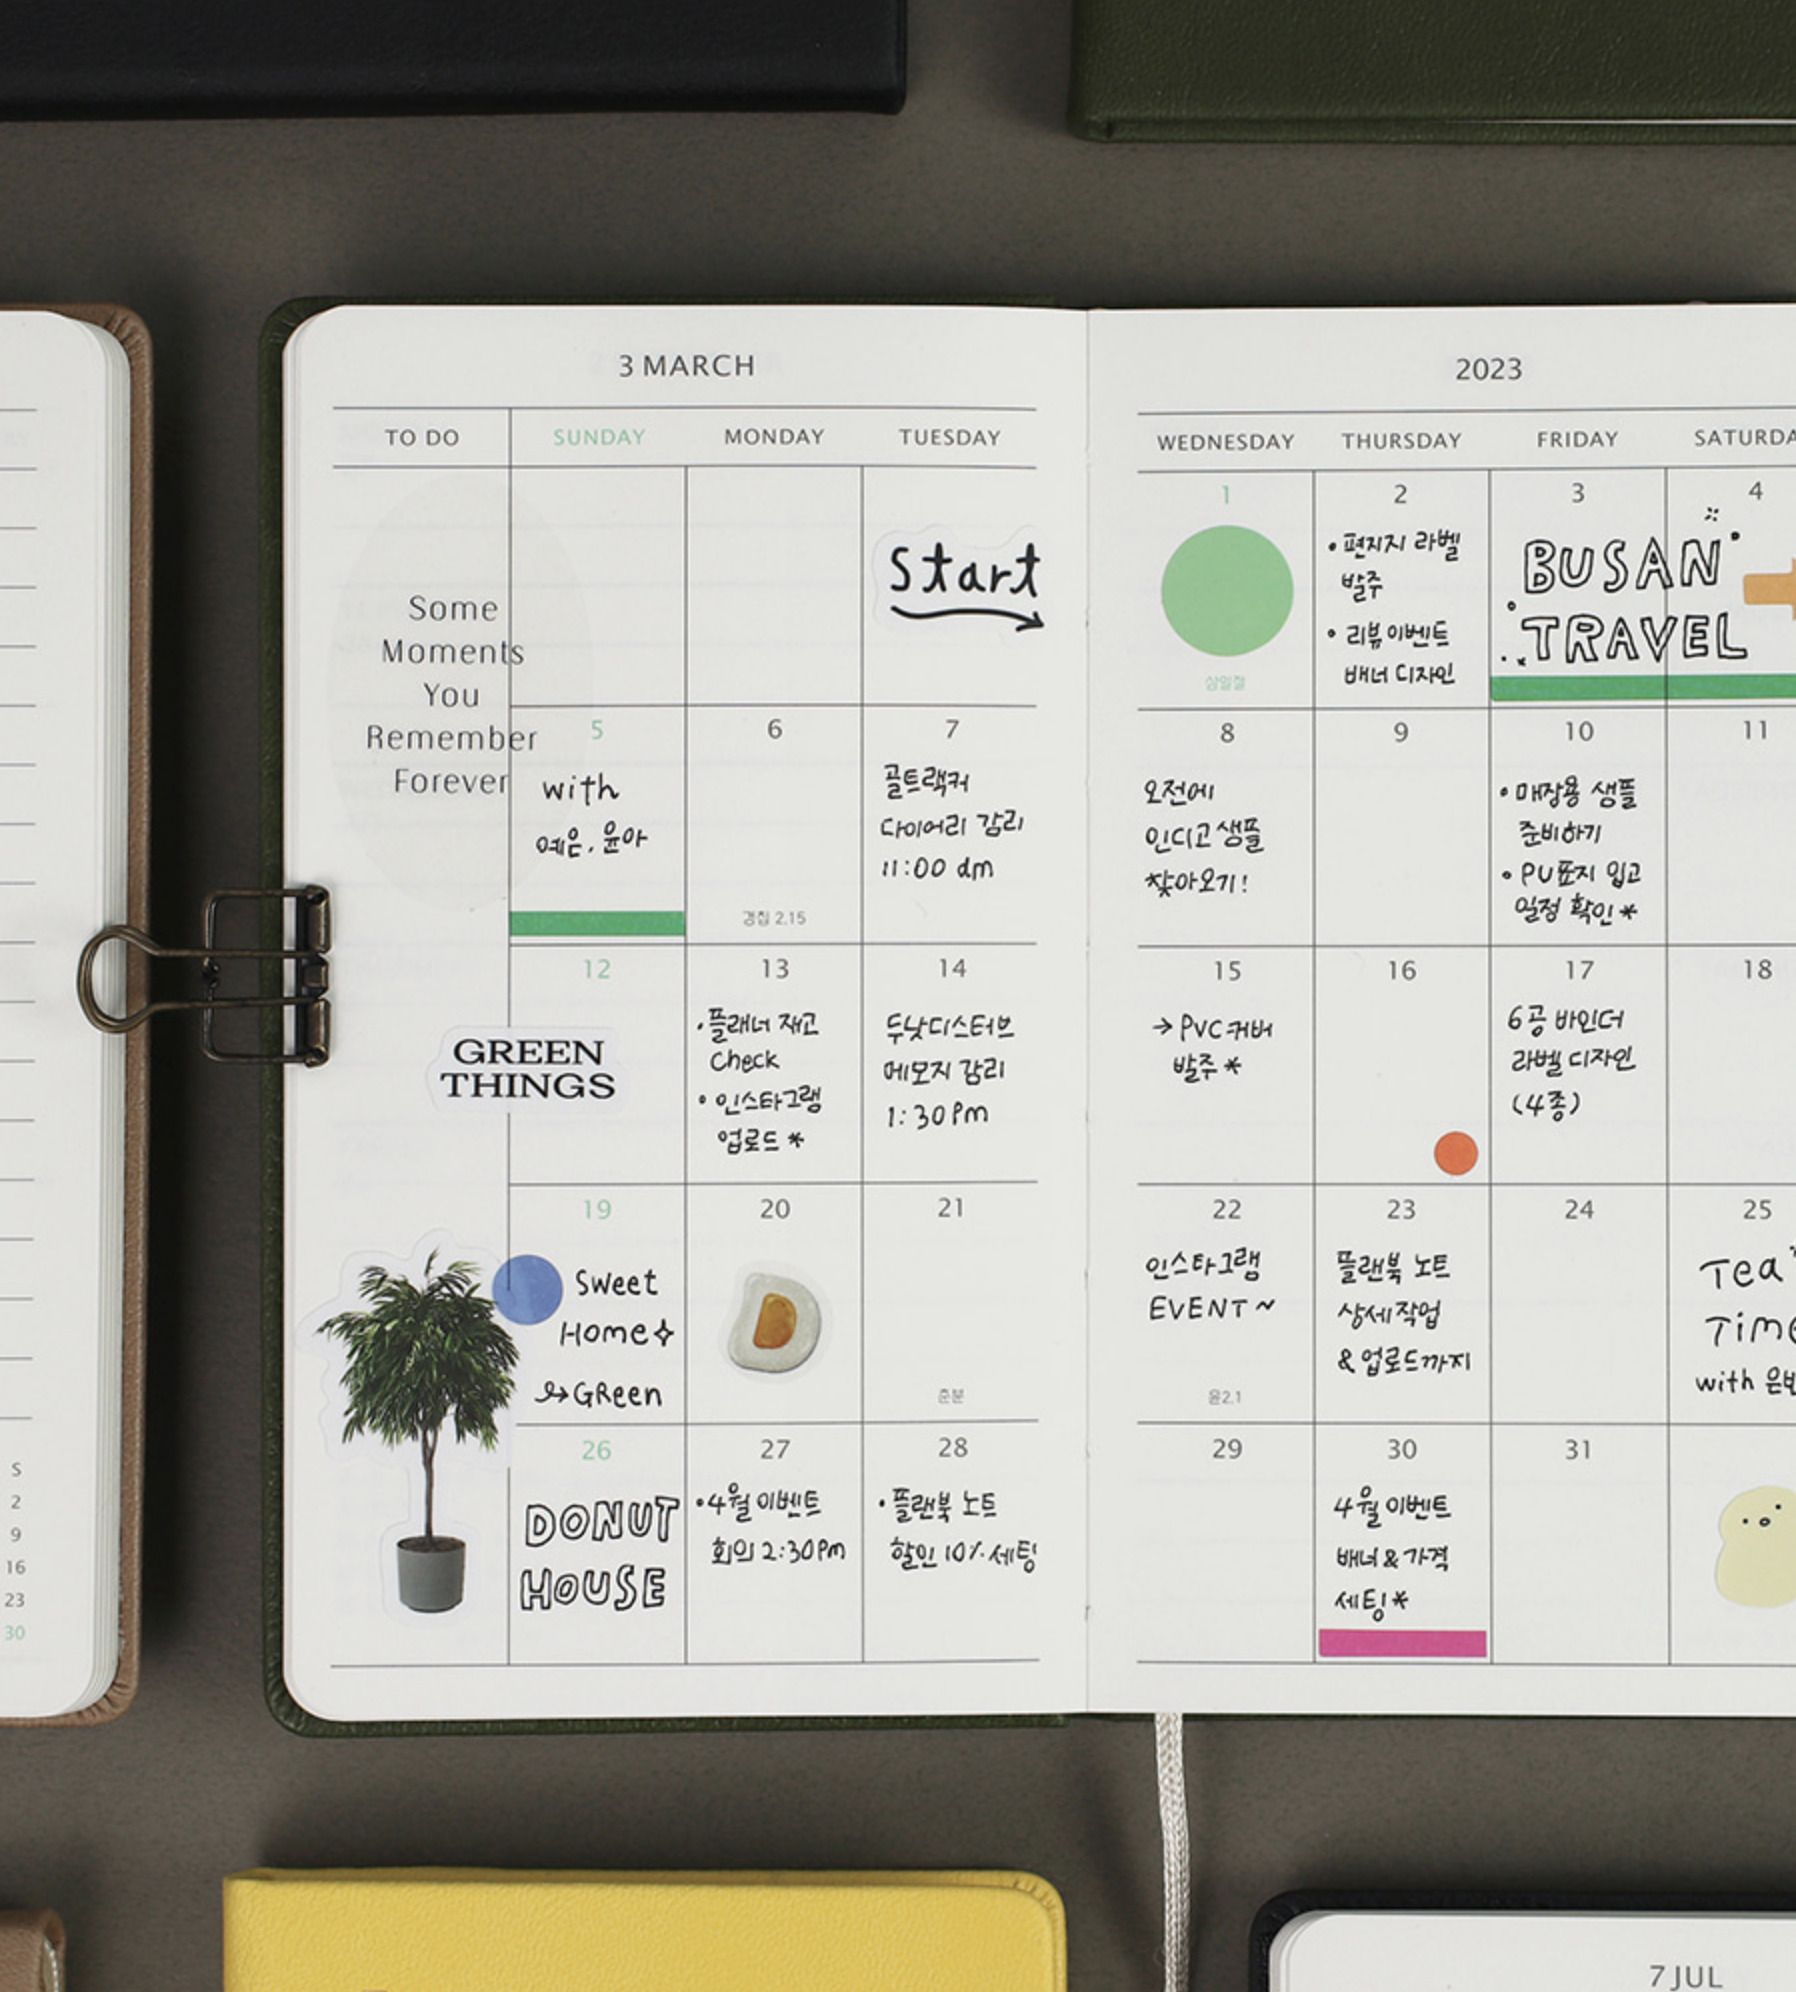 3 MARCH
2023
TO DO
SUNDAY
MONDAY
TUESDAY
WEDNESDAY
THURSDAY
FRIDAY
Some
Moments
You
Remember
Forever
Start
1
삼일절
2
• 편지지 라벨
발주
• 리뷰이벤트
배너 디자인
3
4
BUSAN
TRAVEL
5
with
예은, 윤아
6
경칩 2.15
7
골트래커
다이어리 감리
11:00 am
8
오전에
인디고 샘플
찾아오기!
9
10
• 매장용 샘플
준비하기
• PU표지 입고
일정 확인*
11
GREEN
THINGS
12
13
• 플래너 재고
Check
• 인스타그램
업로드 *
14
두낫디스터브
메모지 감리
1:30 Pm
15
→ PVC커버
발주 *
16
17
6공 바인더
라벨 디자인
(4종)
18
19
Sweet
Home
GReen
20
21
춘분
22
인스타그램
EVENT ~
윤2.1
23
플랜북 노트
상세작업
& 업로드까지
24
25
Tea
Time
with
26
DONUT
HOUSE
27
• 4월 이벤트
회의 2:30Pm
28
• 플랜북 노트
할인 10% 세팅
29
30
4월 이벤트
배너 & 가격
세팅*
31
S
2
9
16
23
30
7 JUL